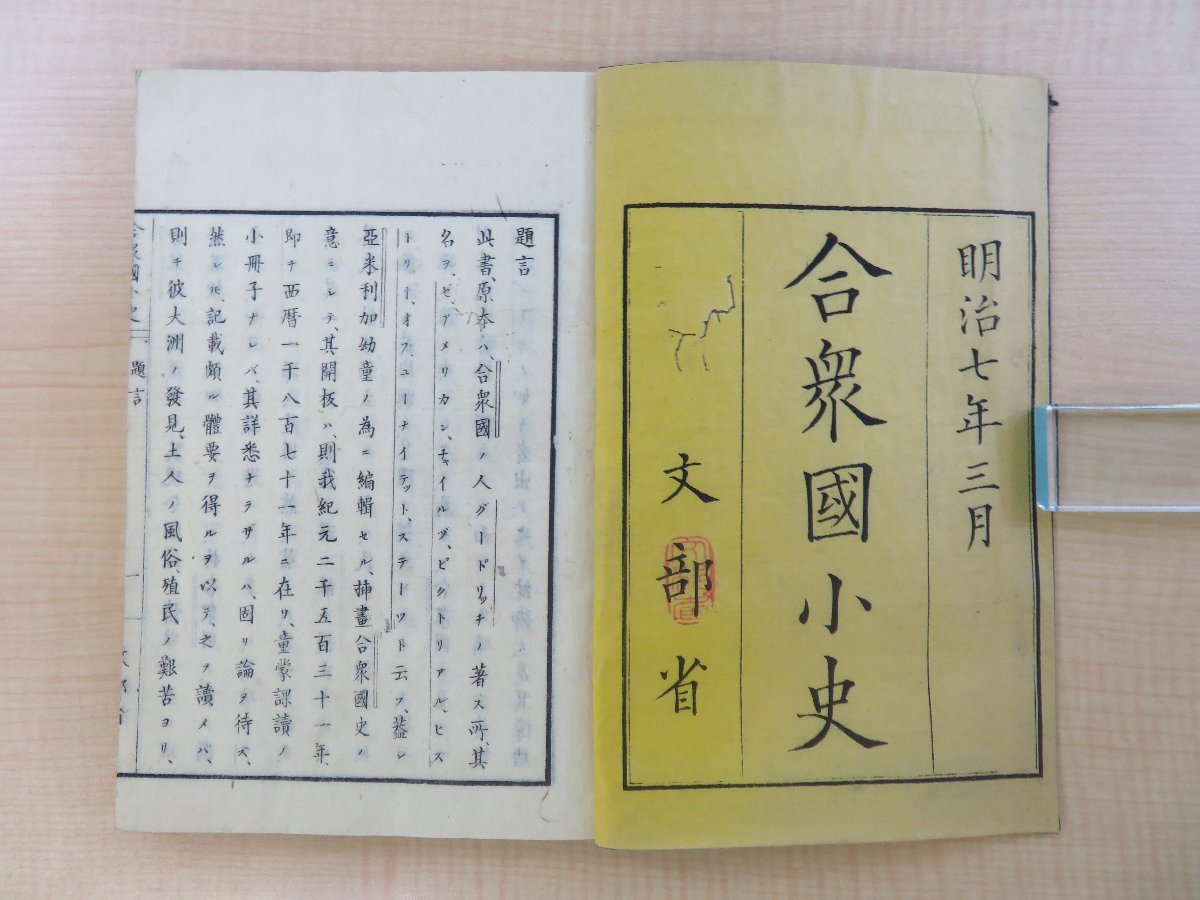 明治七年三月
合衆國小史
文部省
題言
此書、原本ハ、合衆國ノ人グードリッチノ著ス所、其
名ヲ、ゼ、アメリカン、チャイルヅ、ピクトリアル、ヒス
トリー、オフ、ユーナイテット、ステーツト云フ、蓋シ
亞米利加幼童ノ為ニ編輯セル、挿畫合衆國史ノ
意ニシテ、其開板ハ、則我紀元二千五百三十一年、
即チ西暦一千八百七十一年ニ在リ、童蒙課讀ノ
小冊子ナレバ、其詳悉ナラザルハ、固リ論ヲ待ズ、
然レ𪜈、記載頗ル體要ヲ得ルヲ以テ、之ヲ讀メバ、
則チ彼大洲ノ發見、土人ノ風俗、殖民ノ艱苦ヨリ、
合衆國小史
題言
一
文部省